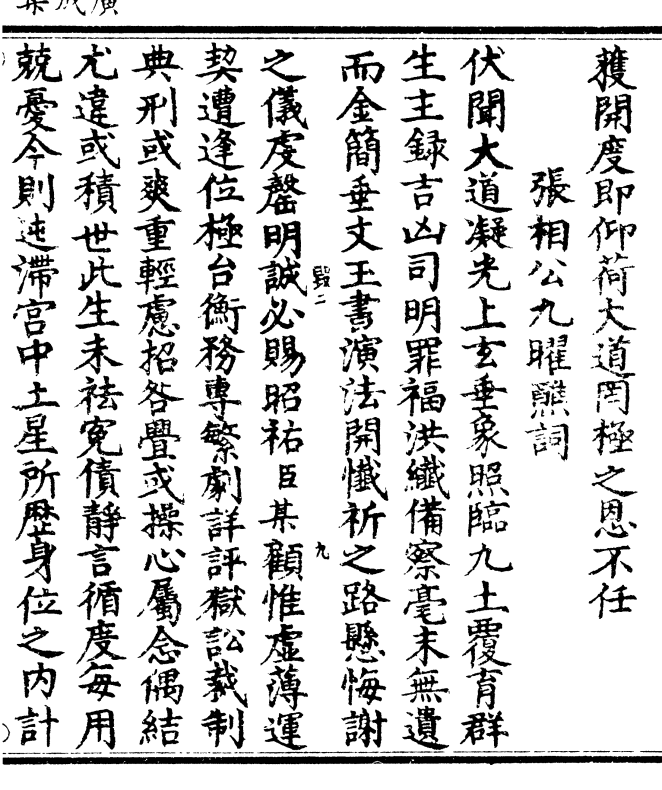 獲開度即仰荷大道罔極之恩不任
張相公九曜醮詞
伏聞大道凝光上玄垂象照臨九土覆育群
生主録吉凶司明罪福洪纎備察毫末無遺
而金簡垂文玉書演法開懺祈之路懸悔謝
之儀虔罄明誠必賜昭祐臣某顧惟虛薄運
毀二
九
契遭逢位極台衡務專繁劇詳評獄訟裁制
典刑或爽重輕慮招咎舋或操心屬念偶結
尤違或積世此生未祛寃債靜言循度每用
兢憂今則迍滯宮中土星所歷身位之内計